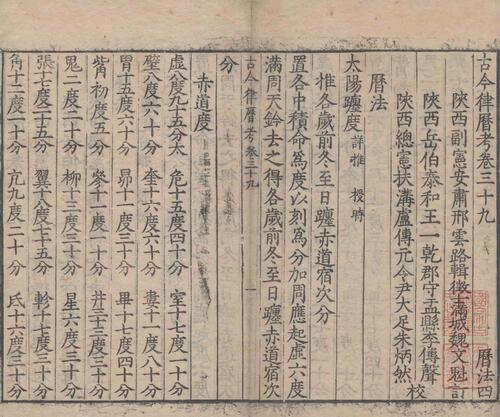 古今律曆考卷三十九　曆法四
陝西副憲安肅邢雲路輯徵士滿城魏文魁訂
陝西岳伯泰和王一乾郡守孟縣李傳聲
陝西總憲扶溝盧傳元令尹大足朱炳然　校
曆法
太陽躔度　詳推　授時
推各歲前冬至日躔赤道宿次分
置各中積命爲度以刻爲分加周應起虛六度
滿周天鈐去之得各歲前冬至日躔赤道宿次
古今律曆考　卷三十九　一
分
赤道度
虛八度九十五分太　危十五度四十分　室十七度一十分
壁八度六十分　奎十六度六十分　婁十一度八十分
胃十五度六十分　昴十一度三十分　畢十七度四十分
觜初度五分　參十一度一十分　井三十三度三十分
鬼二度二十分　柳十三度三十分　星六度三十分
張十七度二十五分　翼十八度七十五分　軫十七度三十分
角十二度一十分　亢九度二十分　氐十六度三十分